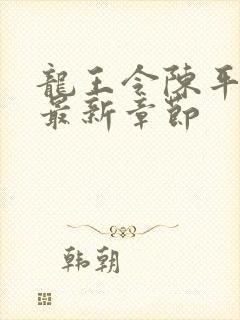 龍王令陳平
最新章節
韩朝